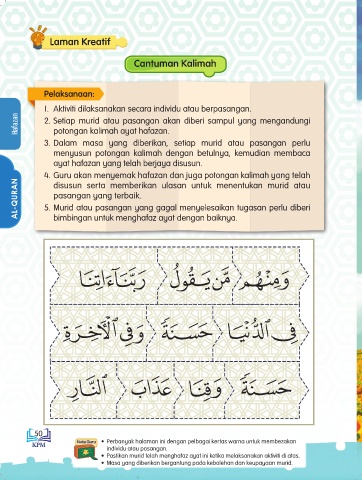 Laman Kreatif
Cantuman Kalimah
Pelaksanaan:
1. Aktiviti dilaksanakan secara individu atau berpasangan.
2. Setiap murid atau pasangan akan diberi sampul yang mengandungi
potongan kalimah ayat hafazan.
3. Dalam masa yang diberikan, setiap murid atau pasangan perlu
menyusun potongan kalimah dengan betulnya, kemudian membaca
ayat hafazan yang telah berjaya disusun.
4. Guru akan menyemak hafazan dan juga potongan kalimah yang telah
disusun serta memberikan ulasan untuk menentukan murid atau
pasangan yang terbaik.
5. Murid atau pasangan yang gagal menyelesaikan tugasan perlu diberi
bimbingan untuk menghafaz ayat dengan baiknya.
Hafazan
AL-QURAN
وَمِنْهُم مَّن يَقُولُ رَبَّنَآ ءَاتِنَا
فِى ٱلدُّنْيَا حَسَنَةً وَفِى ٱلْأَخِرَةِ
حَسَنَةً وَقِنَا عَذَابَ ٱلنَّارِ
50
KPM
Nota Guru
• Perbanyak halaman ini dengan pelbagai kertas warna untuk membezakan
individu atau pasangan.
• Pastikan murid telah menghafaz ayat ini ketika melaksanakan aktiviti di atas.
• Masa yang diberikan bergantung pada kebolehan dan keupayaan murid.